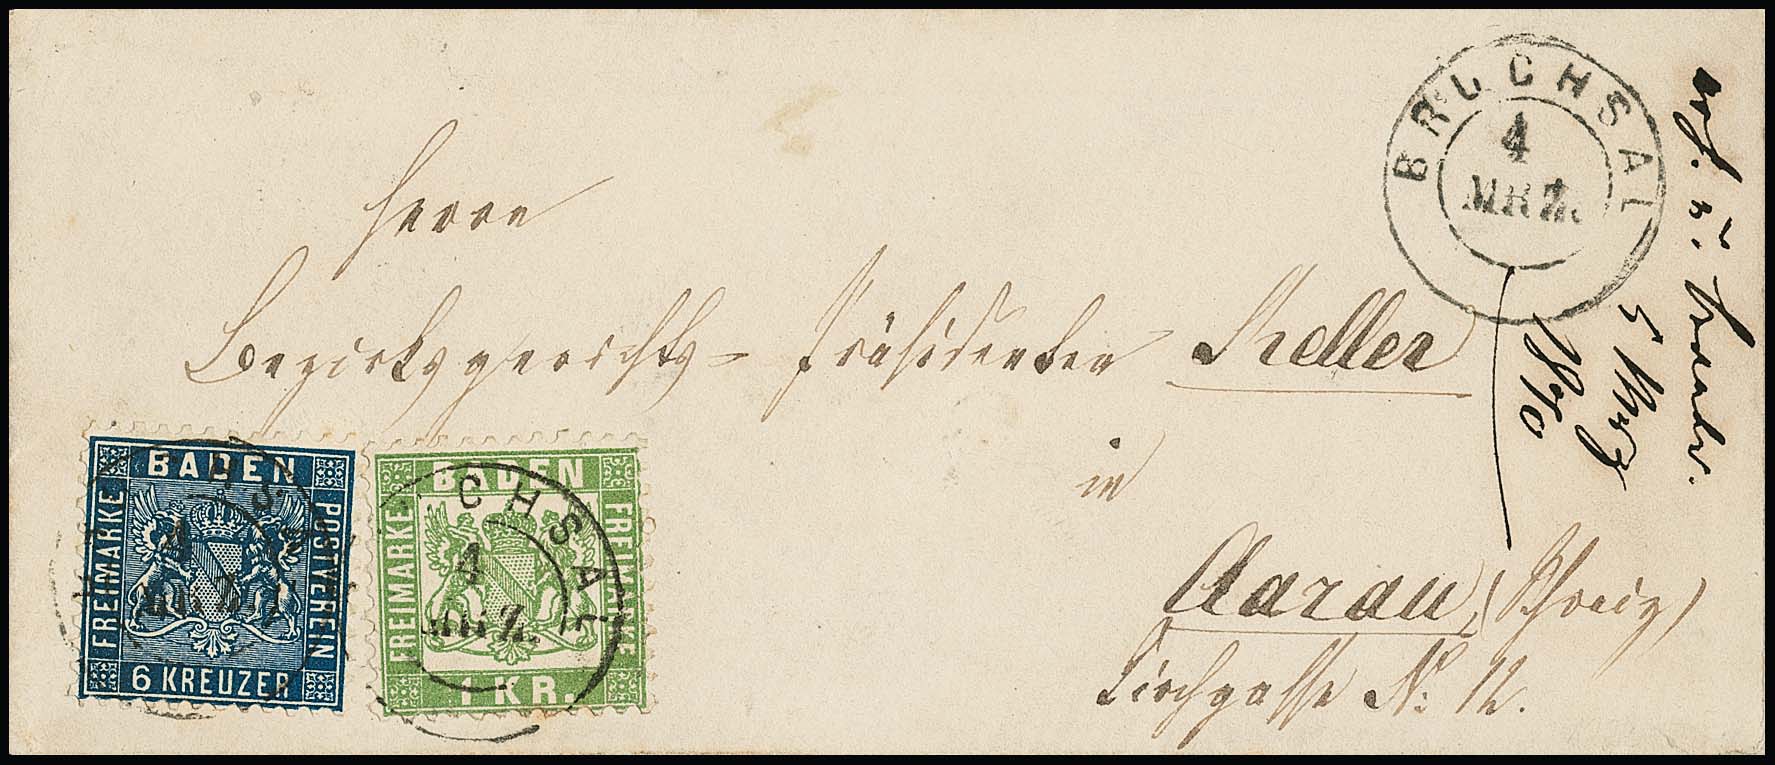 BRUCHSAL
4
MRZ.
Herrn
Bezirksgerichts-Präsidenten Keller
in
Aarau, (Schweiz)
Kirchgasse No. 12.
5 März
1870
BADEN
FREIMARKE
POSTVEREIN
6 KREUZER
BADEN
FREIMARKE
FREIMARKE
1 KR.
CHSAL
4
MRZ.